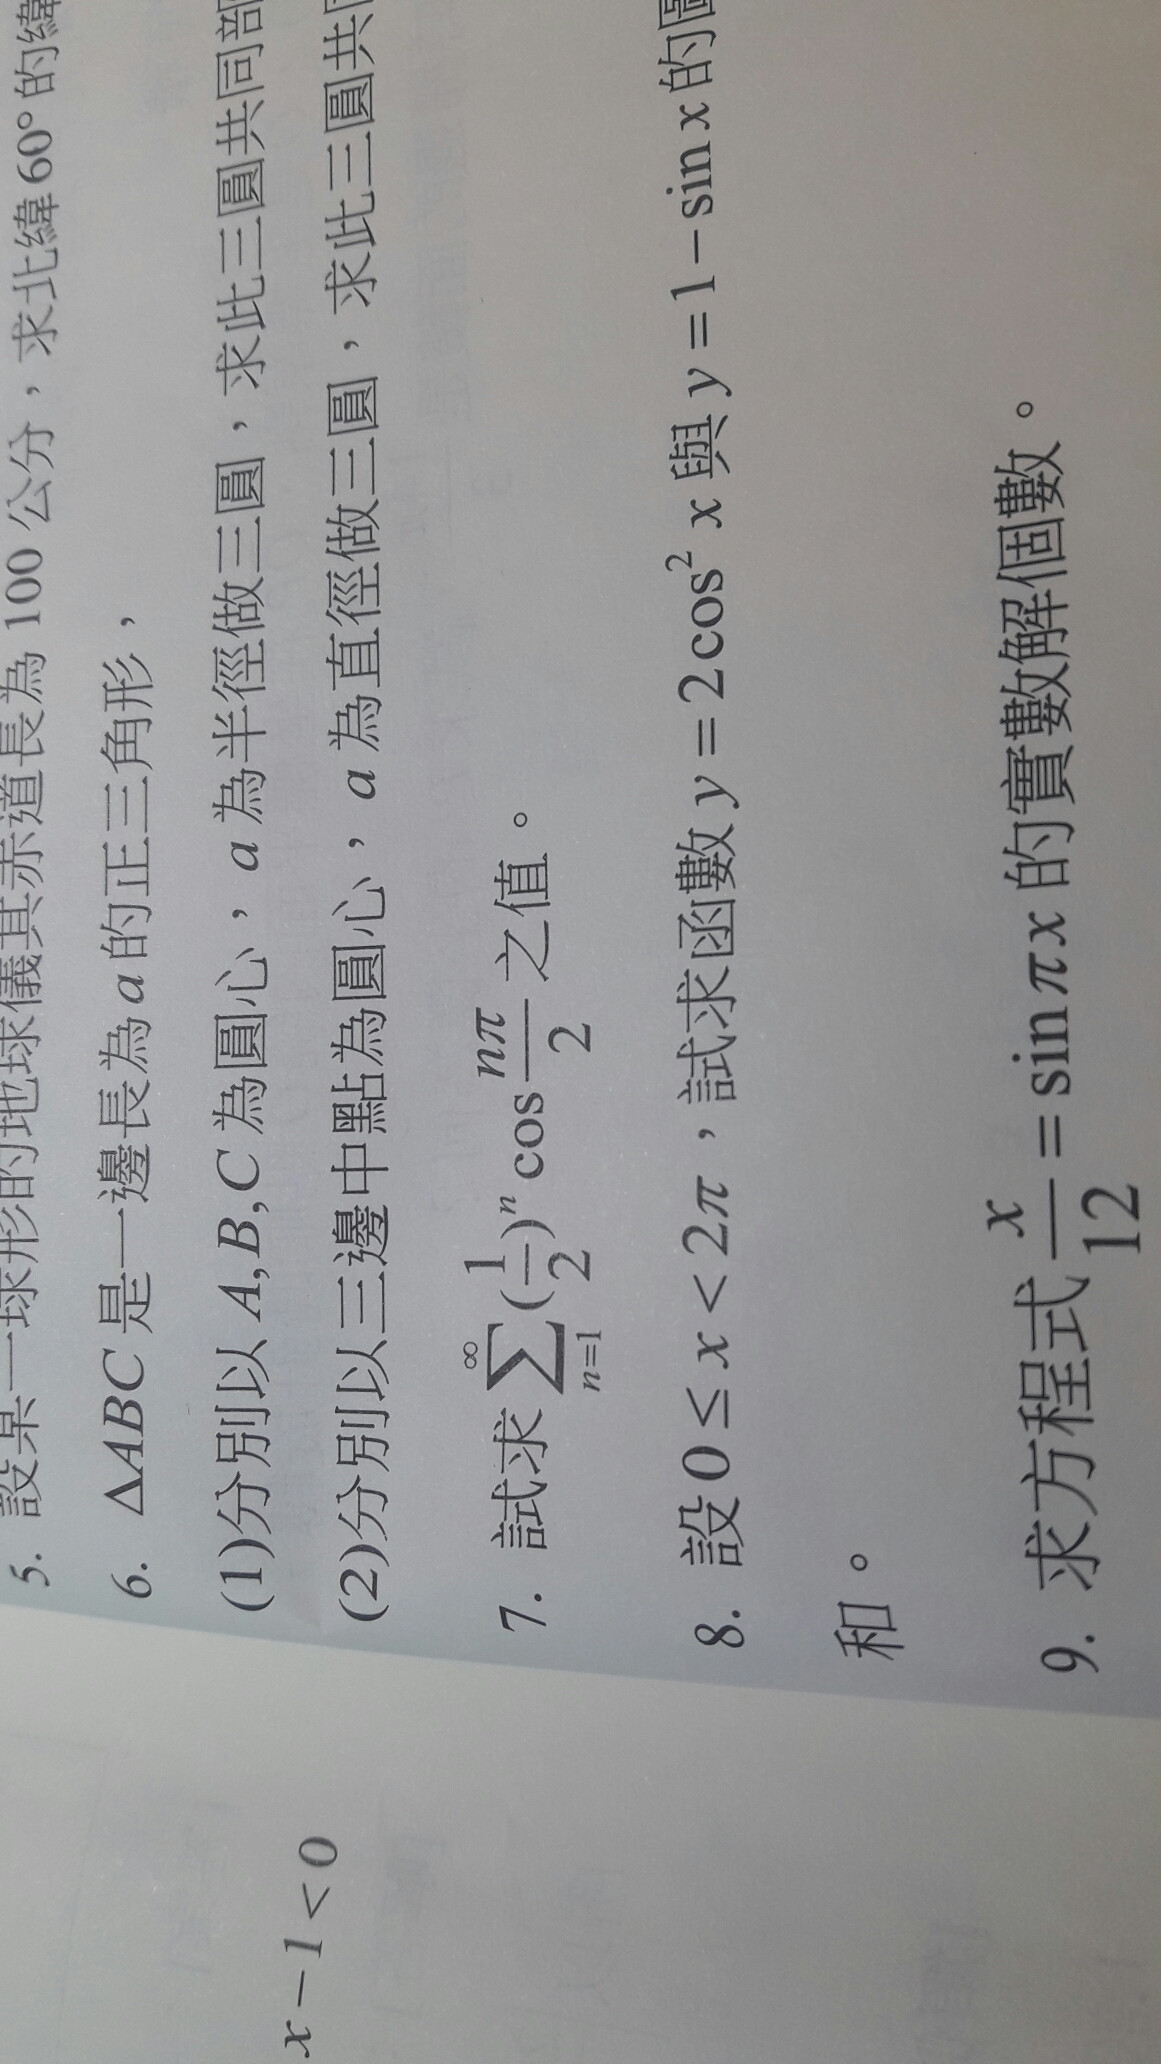 5. 設某一球形的地球儀其赤道長為 100 公分，求北緯 60° 的緯
6. ΔABC 是一邊長為 a 的正三角形，
(1)分別以 A,B,C 為圓心，a 為半徑做三圓，求此三圓共同部
(2)分別以三邊中點為圓心，a 為直徑做三圓，求此三圓共同
7. 試求 \sum_{n=1}^{∞} (\frac{1}{2})^n cos \frac{nπ}{2} 之值。
8. 設 0 ≤ x < 2π，試求函數 y = 2cos² x 與 y = 1 − sin x 的圖
和。
9. 求方程式 \frac{x}{12} = sin πx 的實數解個數。
x − 1 < 0